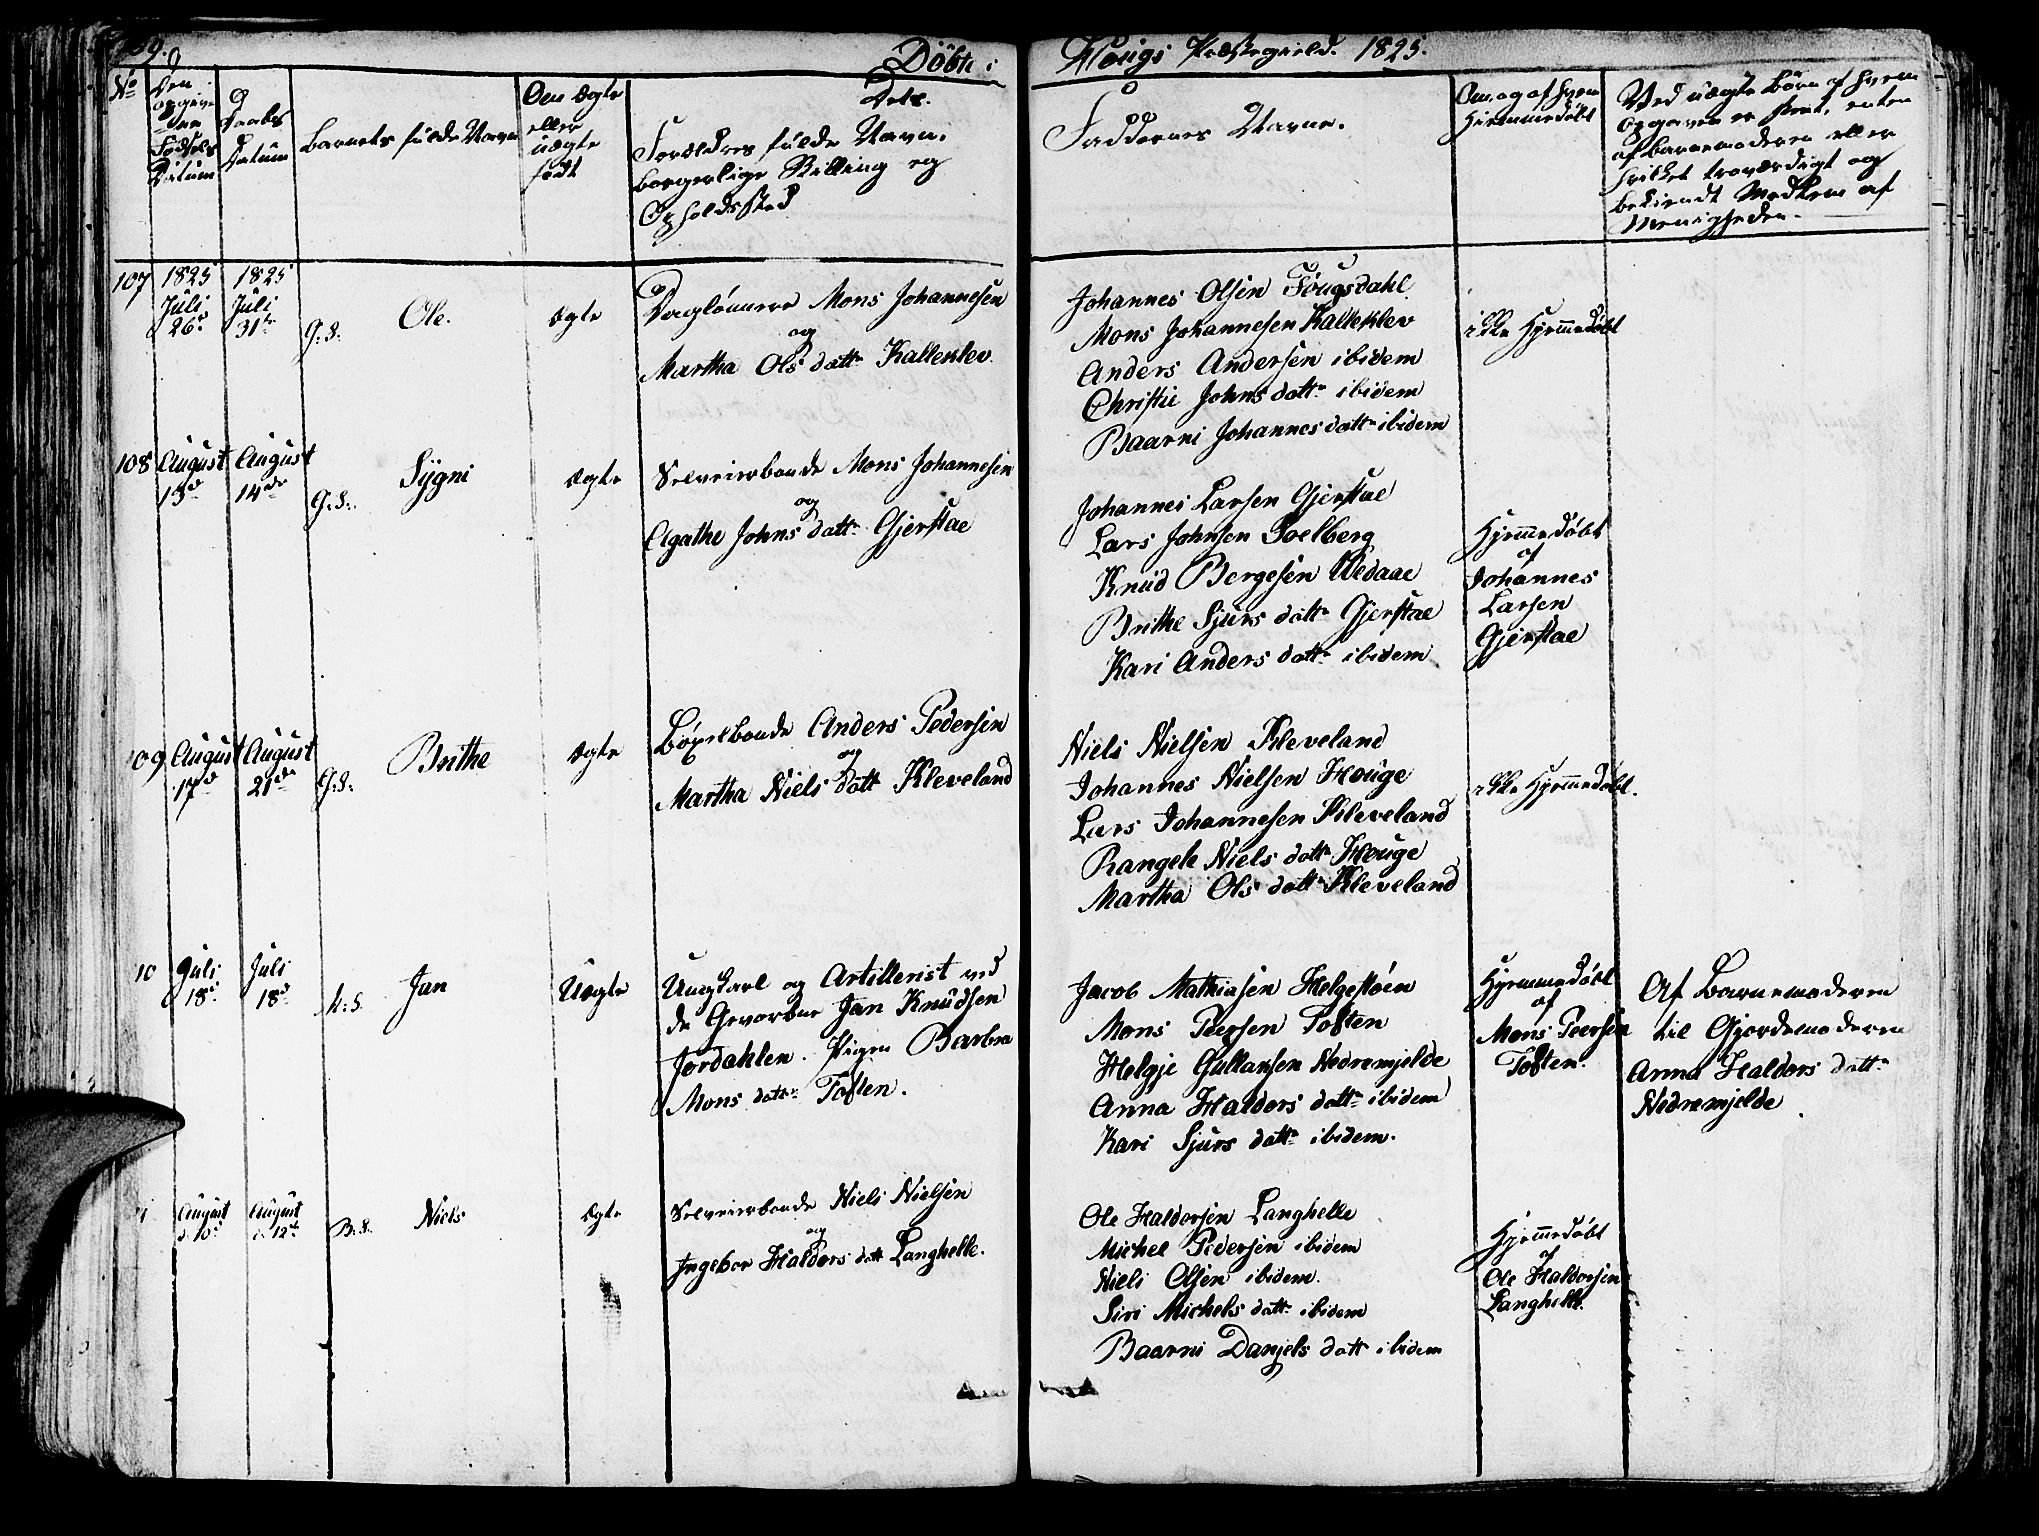 29.
Døbte i Hougs Præstegield. 1825.
No
Den
opgiv-
ne
Fødsels
Datum
Daabs
Datum
Barnets fulde Navn
Om ægte
eller
uægte
født
Forældres fulde Navn,
borgerlige Stilling og
Opholdssted
Faddernes Navne.
Om og af hvem
Hjemmedøbt
Ved uægte Børn af hvem
Opgaven er skeet, enten
af Barnemoderen eller
hvilket troværdigt og
bekiendt Medlem af
Menigheden.
107
1825
Juli
26de
1825
Juli
31te
G: S:
Ole.
ægte
Daglønnere Mons Johannesen
og
Martha Ols dattr Kalleklev.
Johannes Olsen Fougsdahl
Mons Johannesen Kalleklev
Anders Andersen ibidem
Christie Johns dattr ibidem
Baarni Johannes dattr ibidem
ikke Hjemmedøbt
108
August
13de
August
14de
G: S:
Sÿgni
ægte
Selveierbonde Mons Johannesen
og
Agathe Johns dattr Gjerstae
Johannes Larsen Gjerstae
Lars Johnsen Soelberg
Knud Bergesen Wedaae
Brithe Sjurs dattr Gjerstae
Kari Anders dattr ibidem
Hjemmedøbt
af
Johannes
Larsen
Gjerstae
109
August
17de
August
21de
G: S:
Brithe
ægte
Bøxelbonde Anders Pedersen
og
Martha Niels datt Kleveland
Niels Nielsen Kleveland
Johannes Nielsen Houge
Lars Johannesen Kleveland
Rangele Niels dattr Houge
Martha Ols dattr Kleveland
ikke Hjemmedøbt.
10
Juli
18de
Juli
18de
H: S.
Jan
Uægte
Ungkarl og Artillerist ved
de Gevorbne Jan Knudsen
Jordahlen. Pigen Barbra
Mons dattr Toften.
Jacob Mathiasen Helgestøen
Mons Peersen Toften
Helgje Gullaksen Nedremjelde
Anna Haldors dattr ibidem
Kari Sjurs dattr ibidem.
Hjemmedøbt
af
Mons Peersen
Toften.
Af Barnemoderen
til Gjordemoderen
Anna Haldors dattr
Nedremjelde
August
10de
August
12te
B: S.
Niels
ægte
Selveierbonde Niels Nielsen
og
Ingebor Haldors datt Langhelle.
Ole Haldorsen Langhelle
Michel Pedersen ibidem
Niels Olsen ibidem.
Siri Michels dattr ibidem
Baarni Danjels datt ibidem
Hjemmedøbt
af
Ole Haldorsen
Langhelle.